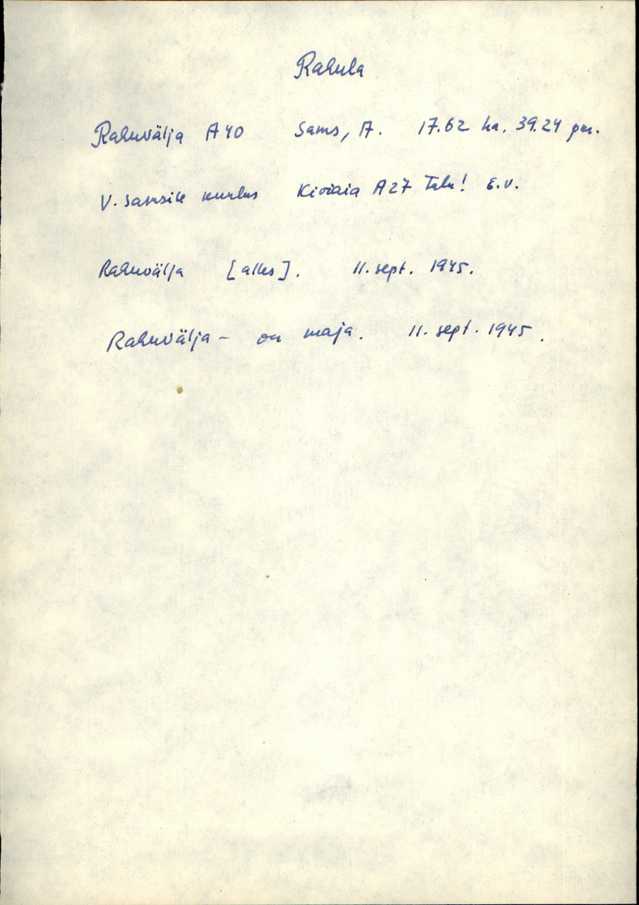 Rahula
Rahuvälja A40 Sams, A. 17.62 ha. 39.24 per.
V. Samsile kuulus Kiviaia A27 Talu! E.V.
Rahuvälja [alles]. 11. sept. 1945.
Rahuvälja - on maja. 11. sept. 1945.